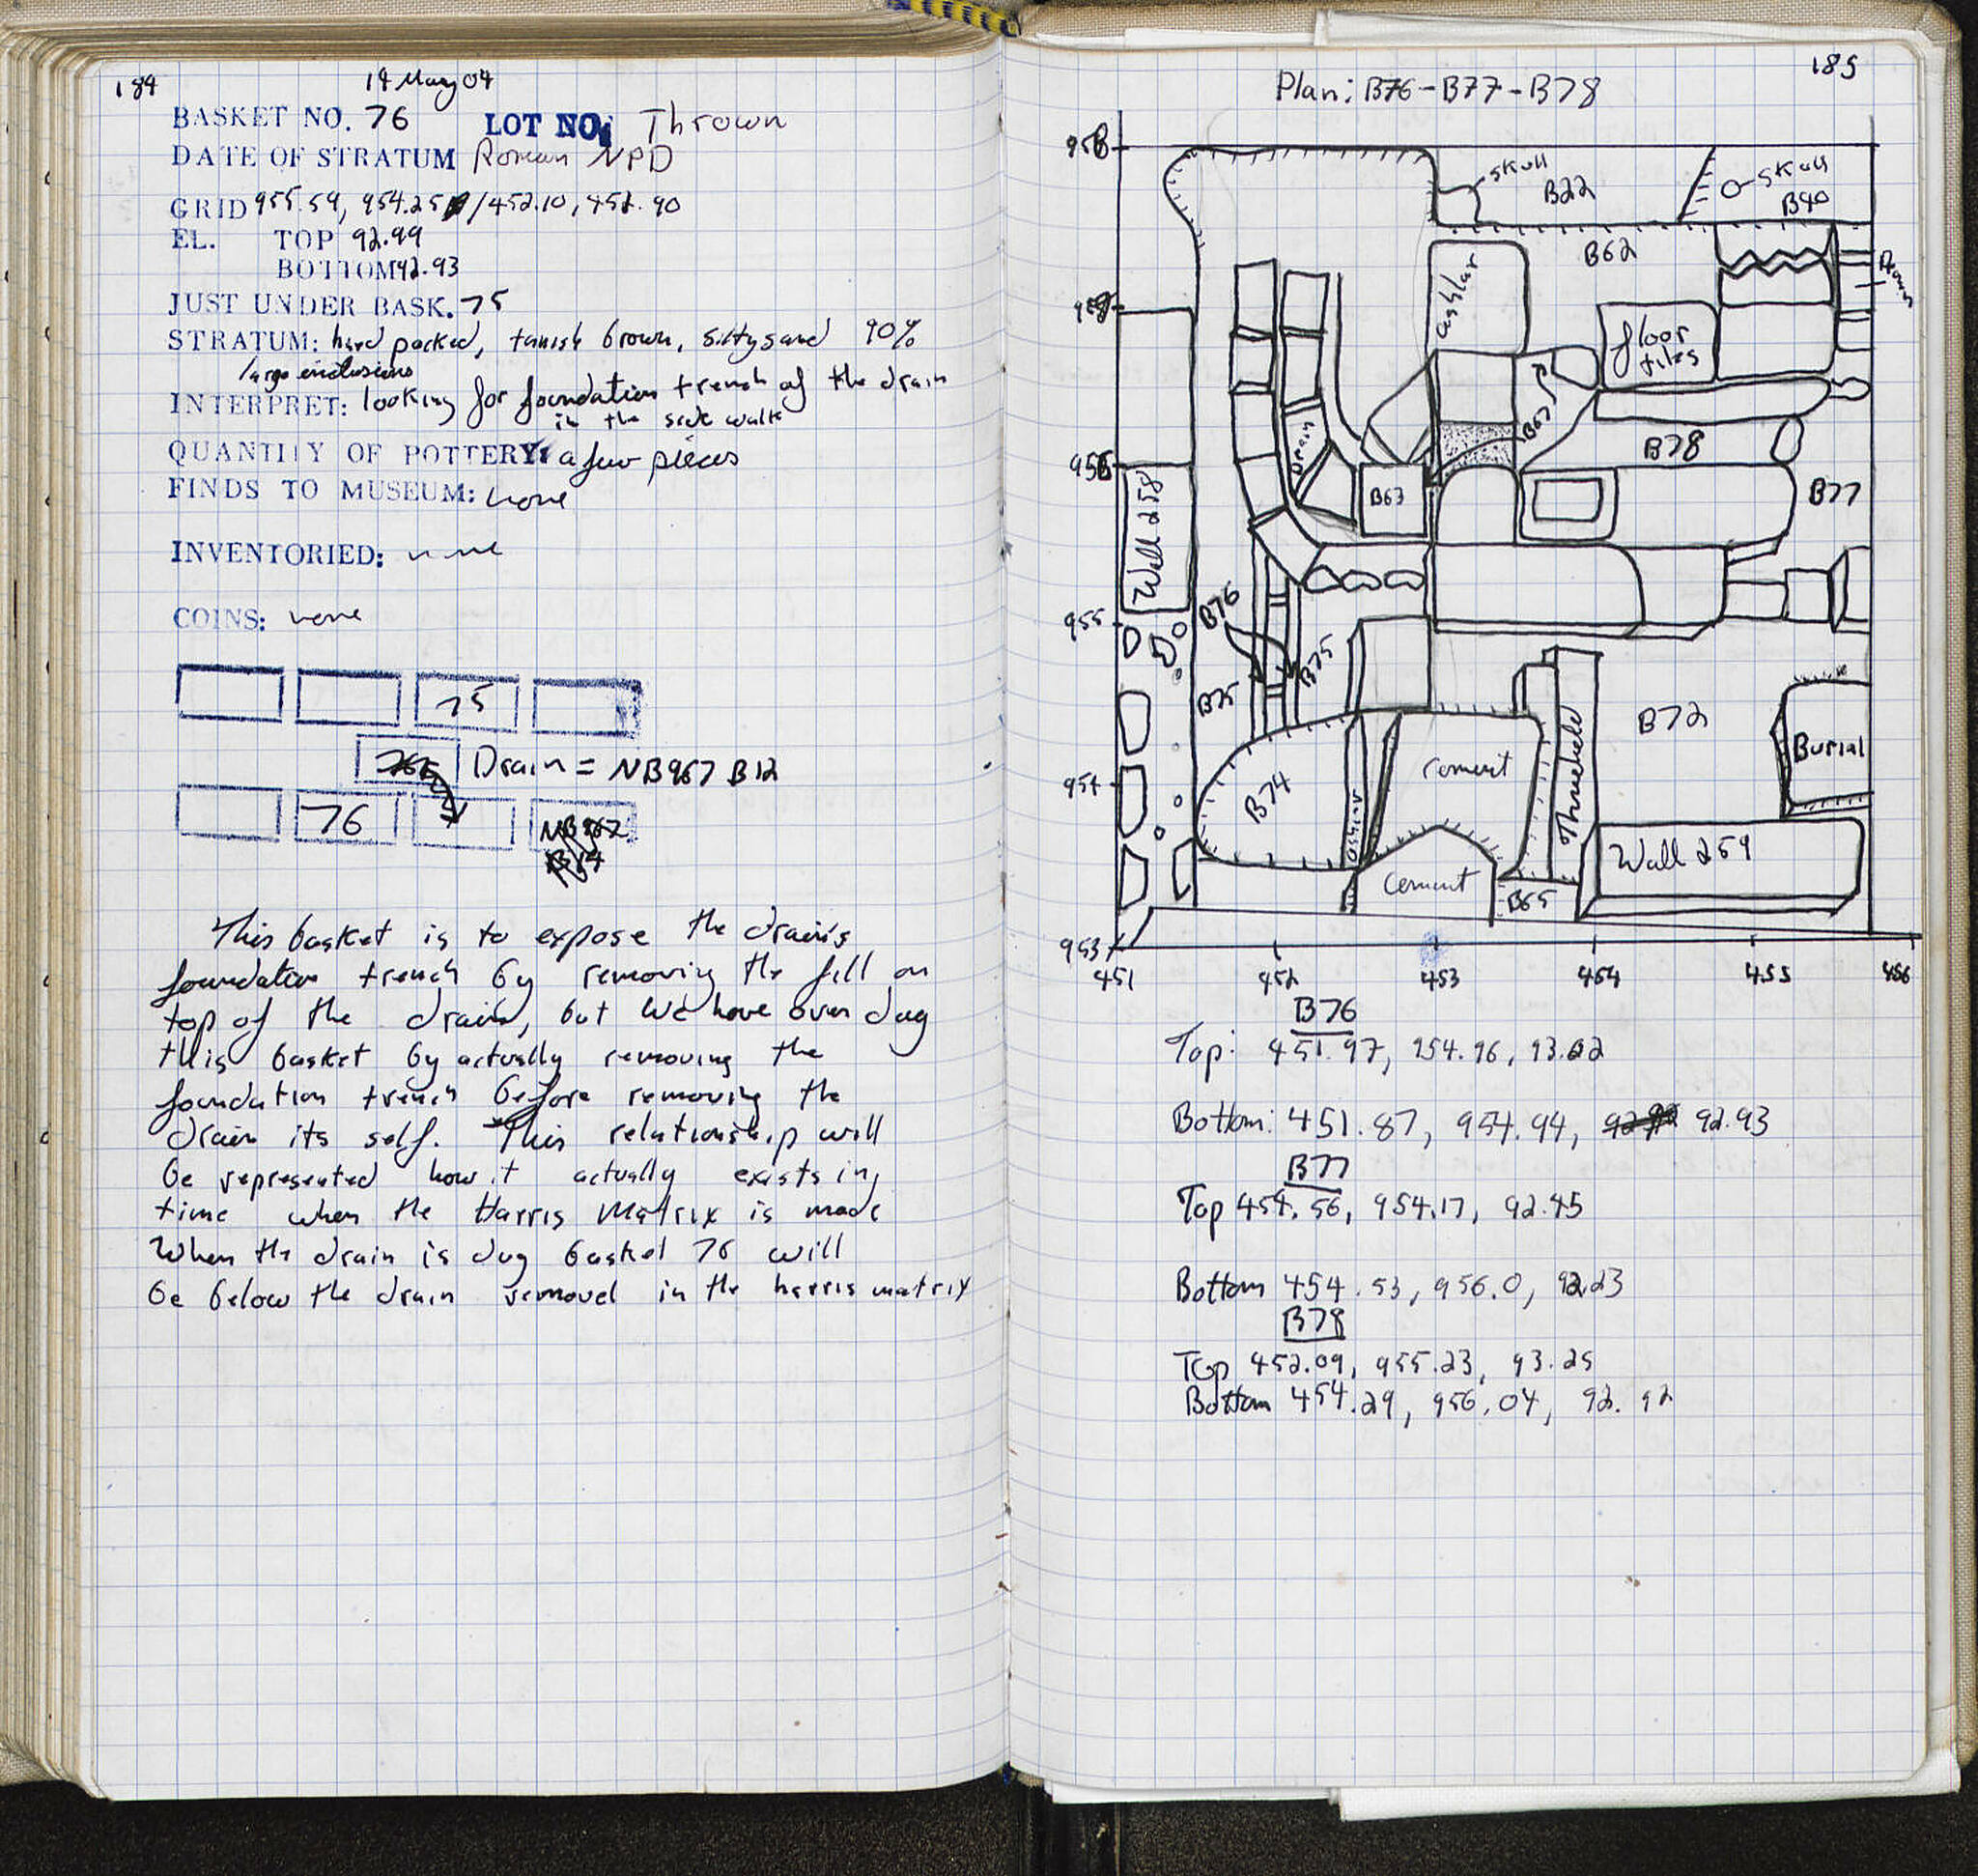 184
14 May 04
BASKET NO. 76 LOT NO. Thrown
DATE OF STRATUM Roman NPD
GRID 955.59, 954.25 /452.10, 452.90
EL. TOP 92.99
BOTTOM 92.93
JUST UNDER BASK. 75
STRATUM: hard packed, tanish brown, silty sand 90%
large inclusions
INTERPRET: looking for foundation trench of the drain
in the side walk
QUANTITY OF POTTERY: a few pieces
FINDS TO MUSEUM: none
INVENTORIED: none
COINS: none
75
Drain = NB967 B12
76
NB967
This basket is to expose the drain's
foundation trench by removing the fill on
top of the drain, but we have over dug
this basket by actually removing the
foundation trench before removing the
drain its self. This relationship will
be represented how it actually exists in
time when the Harris Matrix is made
When the drain is dug basket 76 will
be below the drain removed in the harris matrix
185
Plan: B76-B77-B78
958
skull
B22
O-skull
B40
B62
Drain
957
ashlar
floor
tiles
B67
Drain
B78
956
B63
B77
Wall 258
955
B76
B75
B75
B72
Burial
Cement
Threshold
954
B74
Wall 259
Cement
B65
953
451 452 453 454 455 456
B76
Top: 451.97, 954.96, 93.02
Bottom: 451.87, 954.94, 92.93
B77
Top 454.56, 954.17, 92.45
Bottom 454.53, 956.0, 92.23
B78
Top 452.09, 955.23, 93.25
Bottom 454.29, 956.04, 92.92